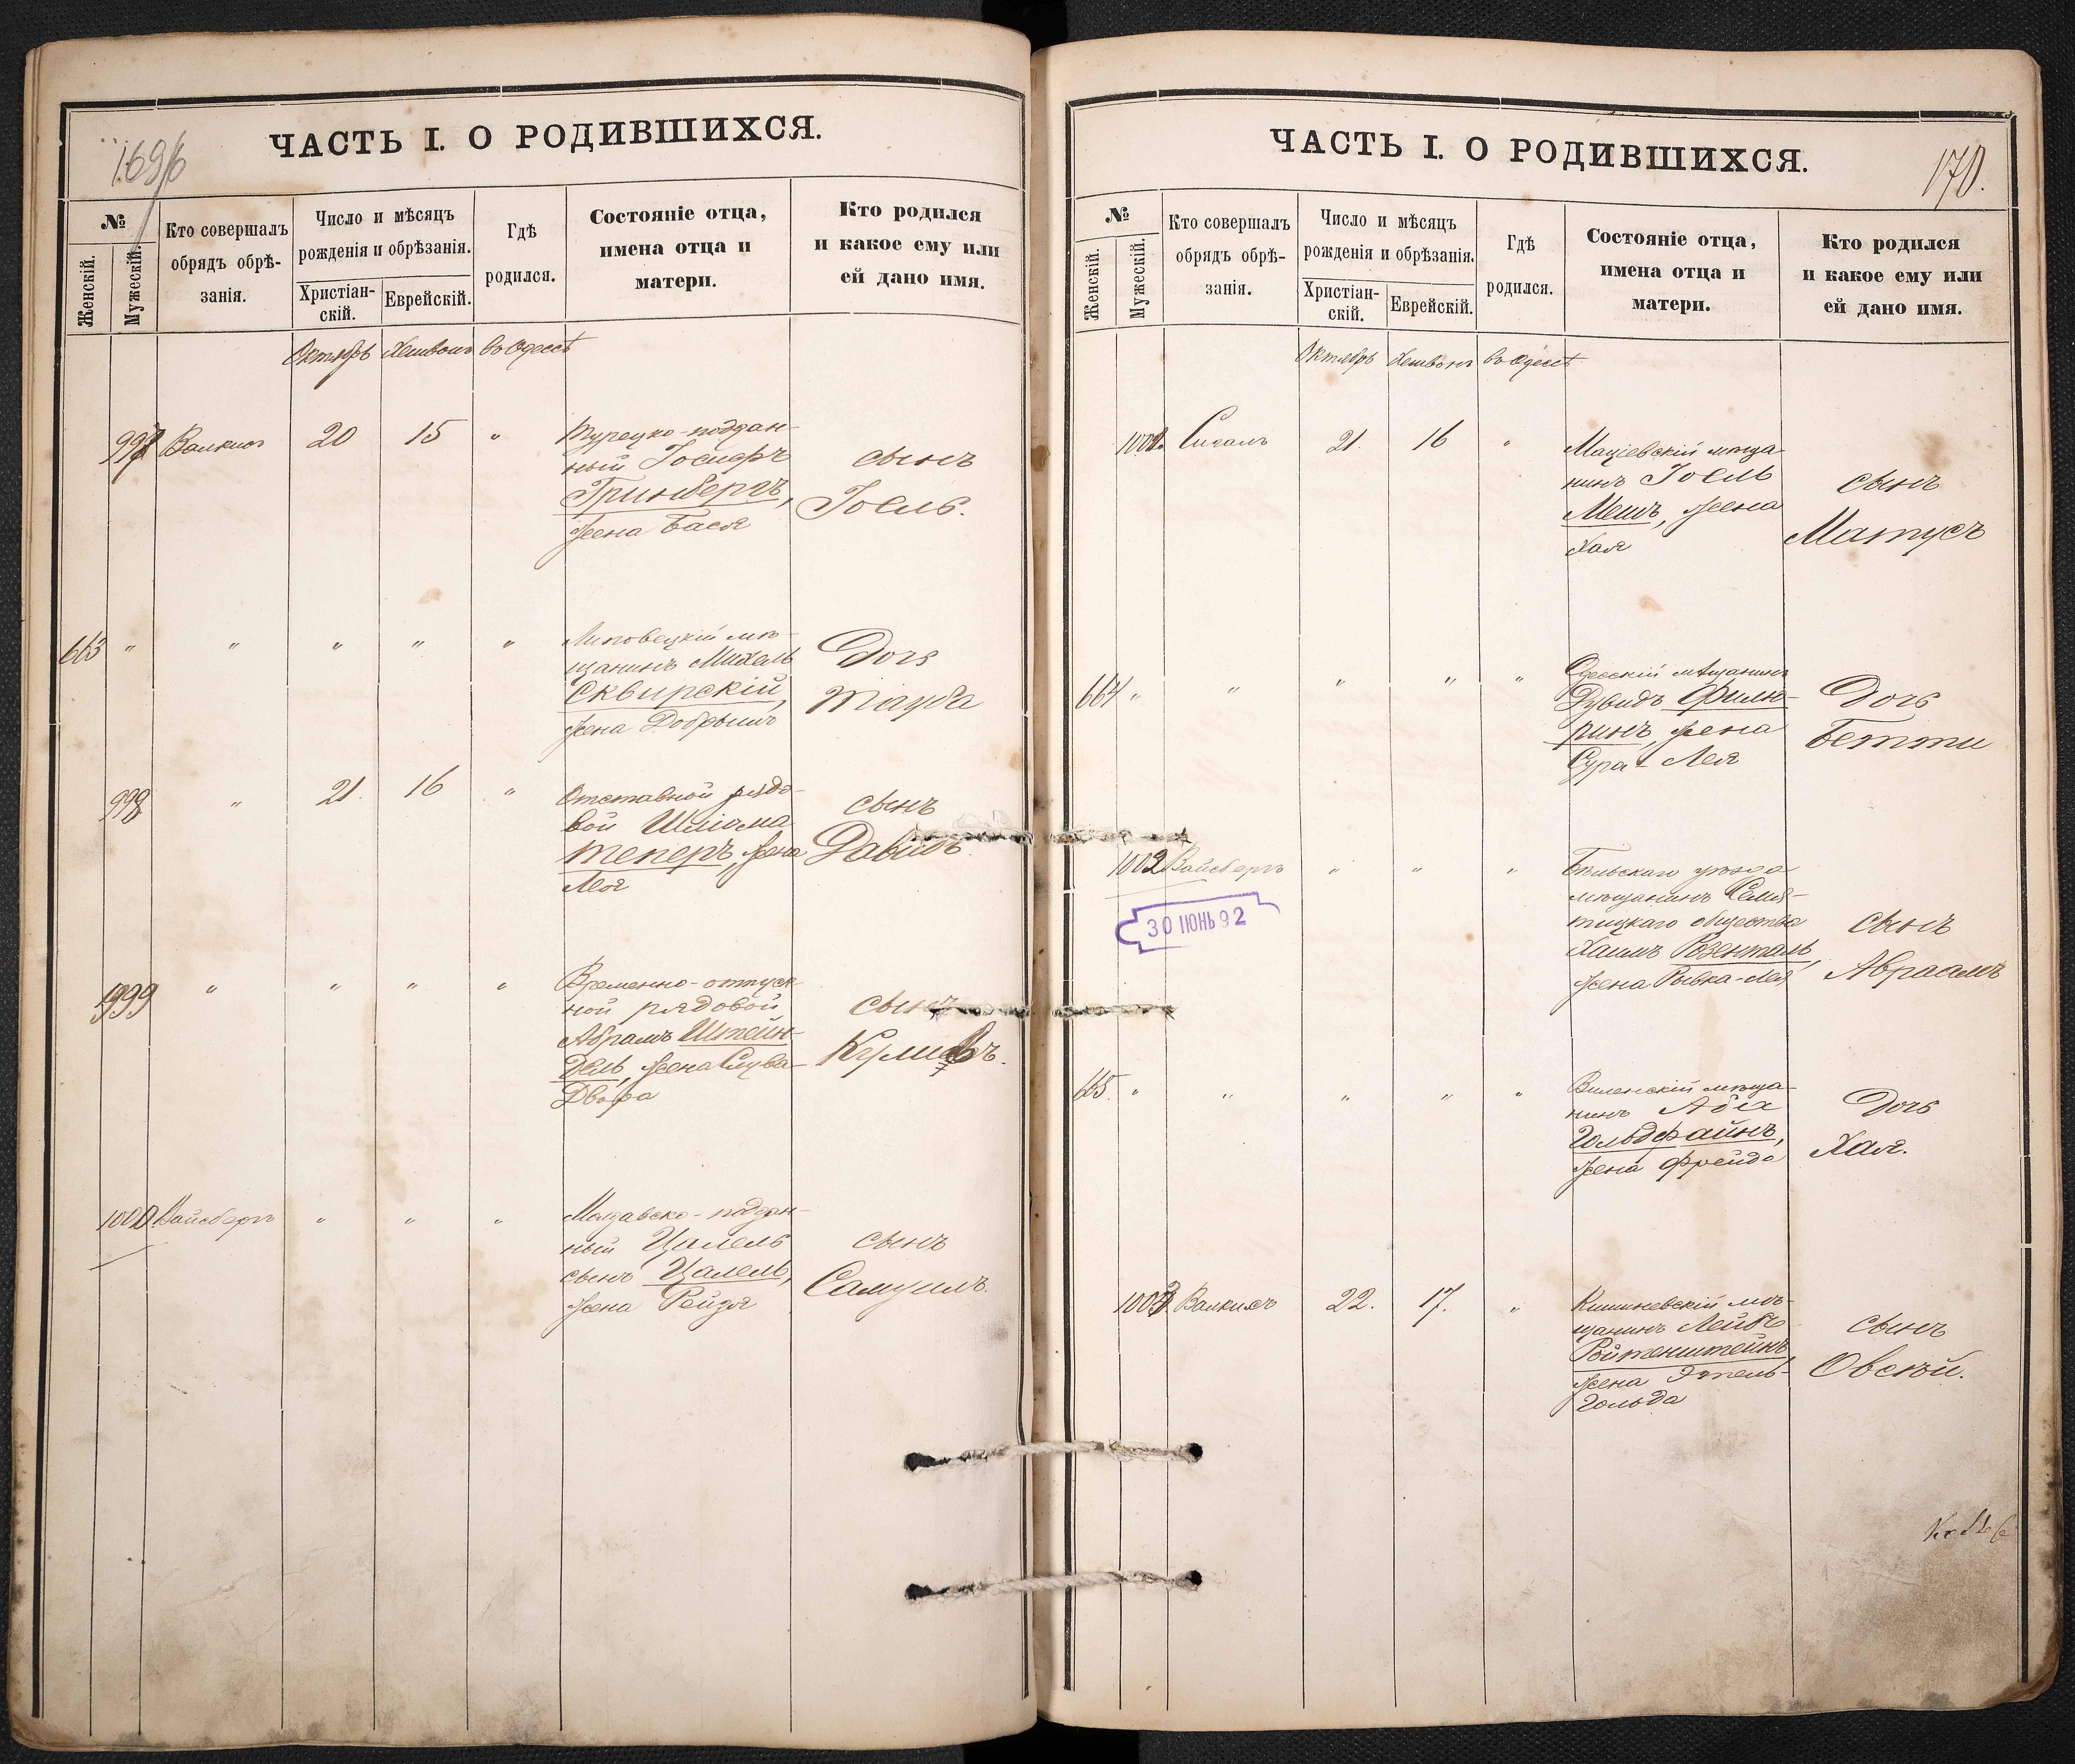 169/б
ЧАСТЬ I. О РОДИВШИХСЯ.
№
Женскій.
Мужескій.
Кто совершалъ
обрядъ обрѣ-
занія.
Число и мѣсяцъ
рожденія и обрѣзанія.
Христіан-
скій.
Еврейскій.
Гдѣ
родился.
Состояніе отца,
имена отца и
матери.
Кто родился
и какое ему или
ей дано имя.
Октябрь Хешвонъ въ Одессѣ
997 Валкисъ 20 15 "
Турецко-поддан-
ный Іосифъ
Гринбергъ,
жена Бася
сынъ
Іосль.
663 " " " " "
Липовецкій мѣ-
щанинъ Михель
Сквирскій,
жена Добрышъ
Дочь
Тауба
998 " 21. 16 "
Отставной рядо-
вой Шліома
Теперъ, жена
Лея
сынъ
Давидъ.
999 " " " "
Временно-отпуск-
ной рядовой
Абрамъ Штейн-
дель, жена Слува-
Двора
сынъ
1000 Вайсбергъ " " "
Молдавско-поддан-
ный Цалель
сынъ Цалель,
жена Рейзя
сынъ
Самуилъ.
170.
ЧАСТЬ I. О РОДИВШИХСЯ.
№
Женскій.
Мужескій.
Кто совершалъ
обрядъ обрѣ-
занія.
Число и мѣсяцъ
рожденія и обрѣзанія.
Христіан-
скій.
Еврейскій.
Гдѣ
родился.
Состояніе отца,
имена отца и
матери.
Кто родился
и какое ему или
ей дано имя.
Октябрь Хешвонъ въ Одессѣ
1001. Сигалъ 21. 16 "
Маціевскій мѣща-
нинъ Іосль
Мешъ, жена
Хая
сынъ
Матусъ
664 " " " " "
Одесскій мѣщанинъ
Дувидъ Филю-
ринъ, жена
Сура-Лея
Дочь
Бетти
1002 Вайсбергъ " " "
30 ІЮНЬ 92
Бѣльскаго уѣзда
мѣщанинъ Семя-
тицкаго общества
Хаимъ Розенталь,
жена Рывка-Лея
сынъ
Авраамъ
665. " " " " "
Виленскій мѣща-
нинъ Аба
Гольдфайнъ,
жена Фрейда
Дочь
Хая.
1003 Валкисъ 22. 17. "
Кишиневскій мѣ-
щанинъ Лейба
Ройтенштейнъ,
жена Этель-
Гольда
сынъ
Овсѣй.